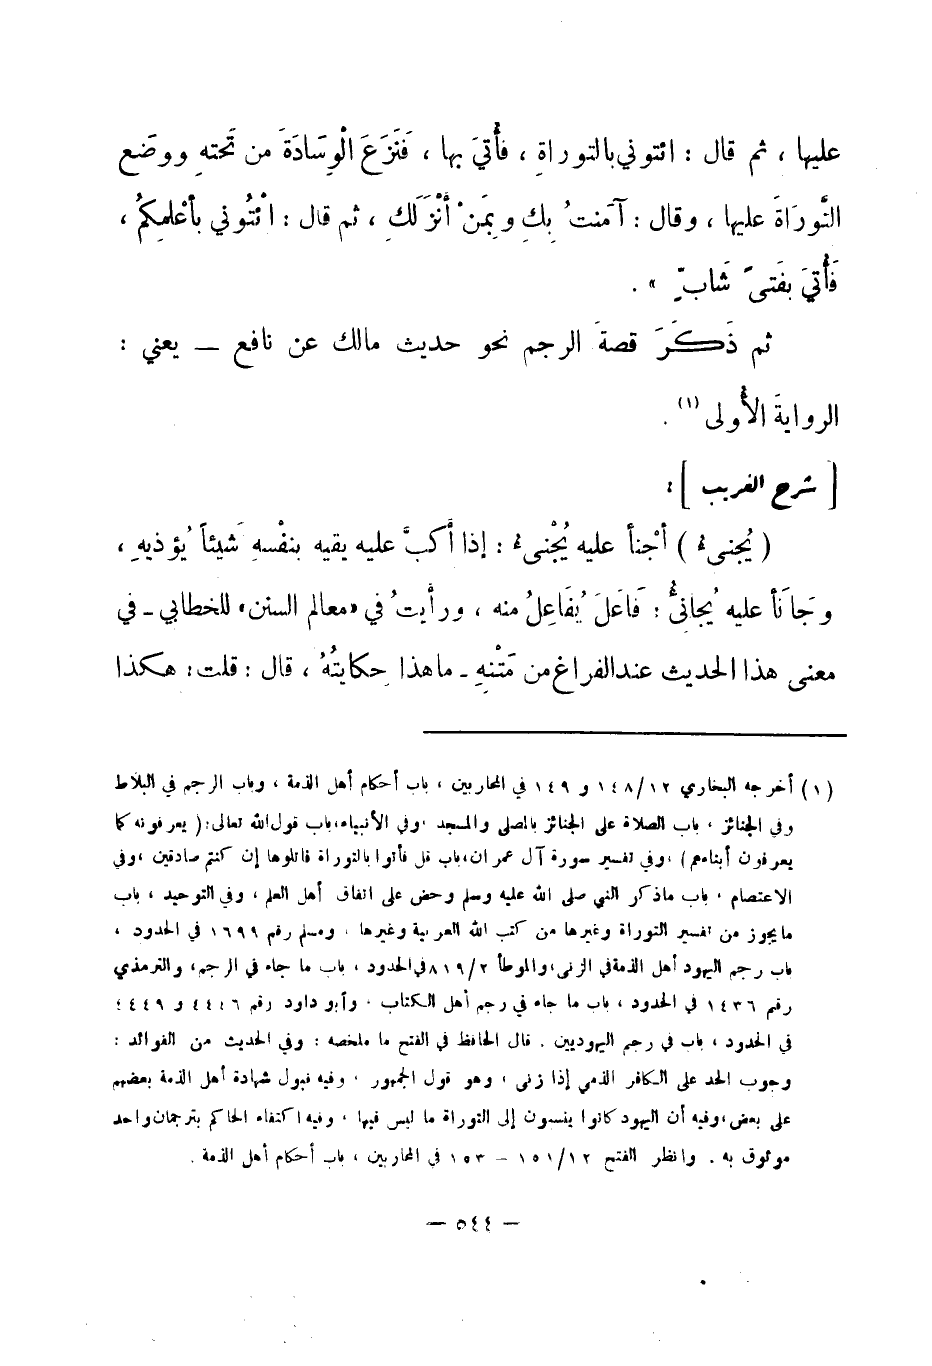 عليها ، ثم قال : ائتوني بالتوراةِ ، فأُتيَ بها ، فَنَزَعَ الْوِسَادَةَ من تَحتهِ ووضَع
التَّورَاةَ عليها ، وقال : آمَنتُ بِكِ وبِمَنْ أَنْزَلَكِ ، ثم قال : ائْتُوني بأعْلمِكُمْ ،
فَأُتِيَ بفَتىً شَابٍّ » .
ثم ذَكَرَ قصةَ الرجم نحو حديث مالك عن نافع — يعني :
الروايةَ الأُولى (١) .
[ شرح الغريب ] :
( يُجنىء ) أجْنأ عليه يُجْنىء : إذا أكبَّ عليه يقيه بنفْسهِ شيئاً يُؤذيهِ ،
وجَانَأ عليه يُجانىُٔ : فَاعَلَ يُفَاعِلُ منه ، ورأيتُ في «معالم السنن» للخطابي ـ في
معنى هذا الحديث عندالفراغ من مَتْنهِ ـ ماهذا حِكايتُهُ ، قال : قلت : هكذا
(١) أخرجه البخاري ١٤٨/١٢ و ١٤٩ في المحاربين ، باب أحكام أهل الذمة ، وباب الرجم في البلاط
وفي الجنائز ، باب الصلاة على الجنائز بالمصلى والمسجد ، وفي الأنبياء، باب قول الله تعالى: ( يعرفونه كما
يعرفون أبناءهم ) ، وفي تفسير سورة آل عمران، باب قل فأتوا بالتوراة فاتلوها إن كنتم صادقين ، وفي
الاعتصام ، باب ماذكر النبي صلى الله عليه وسلم وحض على اتفاق أهل العلم ، وفي التوحيد ، باب
مايجوز من تفسير التوراة وغيرها من كتب الله العربية وغيرها ، ومسلم رقم ١٦٩٩ في الحدود ،
باب رجم اليهود أهل الذمة في الزنى، والموطأ ٨١٩/٢ في الحدود ، باب ما جاء في الرجم، والترمذي
رقم ١٤٣٦ في الحدود ، باب ما جاء في رجم أهل الكتاب ، وأبو داود رقم ٤٤٤٦ و ٤٤٤٩
في الحدود ، باب في رجم اليهوديين . قال الحافظ في الفتح ما ملخصه : وفي الحديث من الفوائد :
وجوب الحد على الكافر الذمي إذا زنى ، وهو قول الجمهور ، وفيه قبول شهادة أهل الذمة بعضهم
على بعض، وفيه أن اليهود كانوا ينسبون إلى التوراة ما ليس فيها ، وفيه اكتفاء الحاكم بترجمان واحد
موثوق به . وانظر الفتح ١٥١/١٢ – ١٥٣ في المحاربين ، باب أحكام أهل الذمة .
— ٥٤٤ —